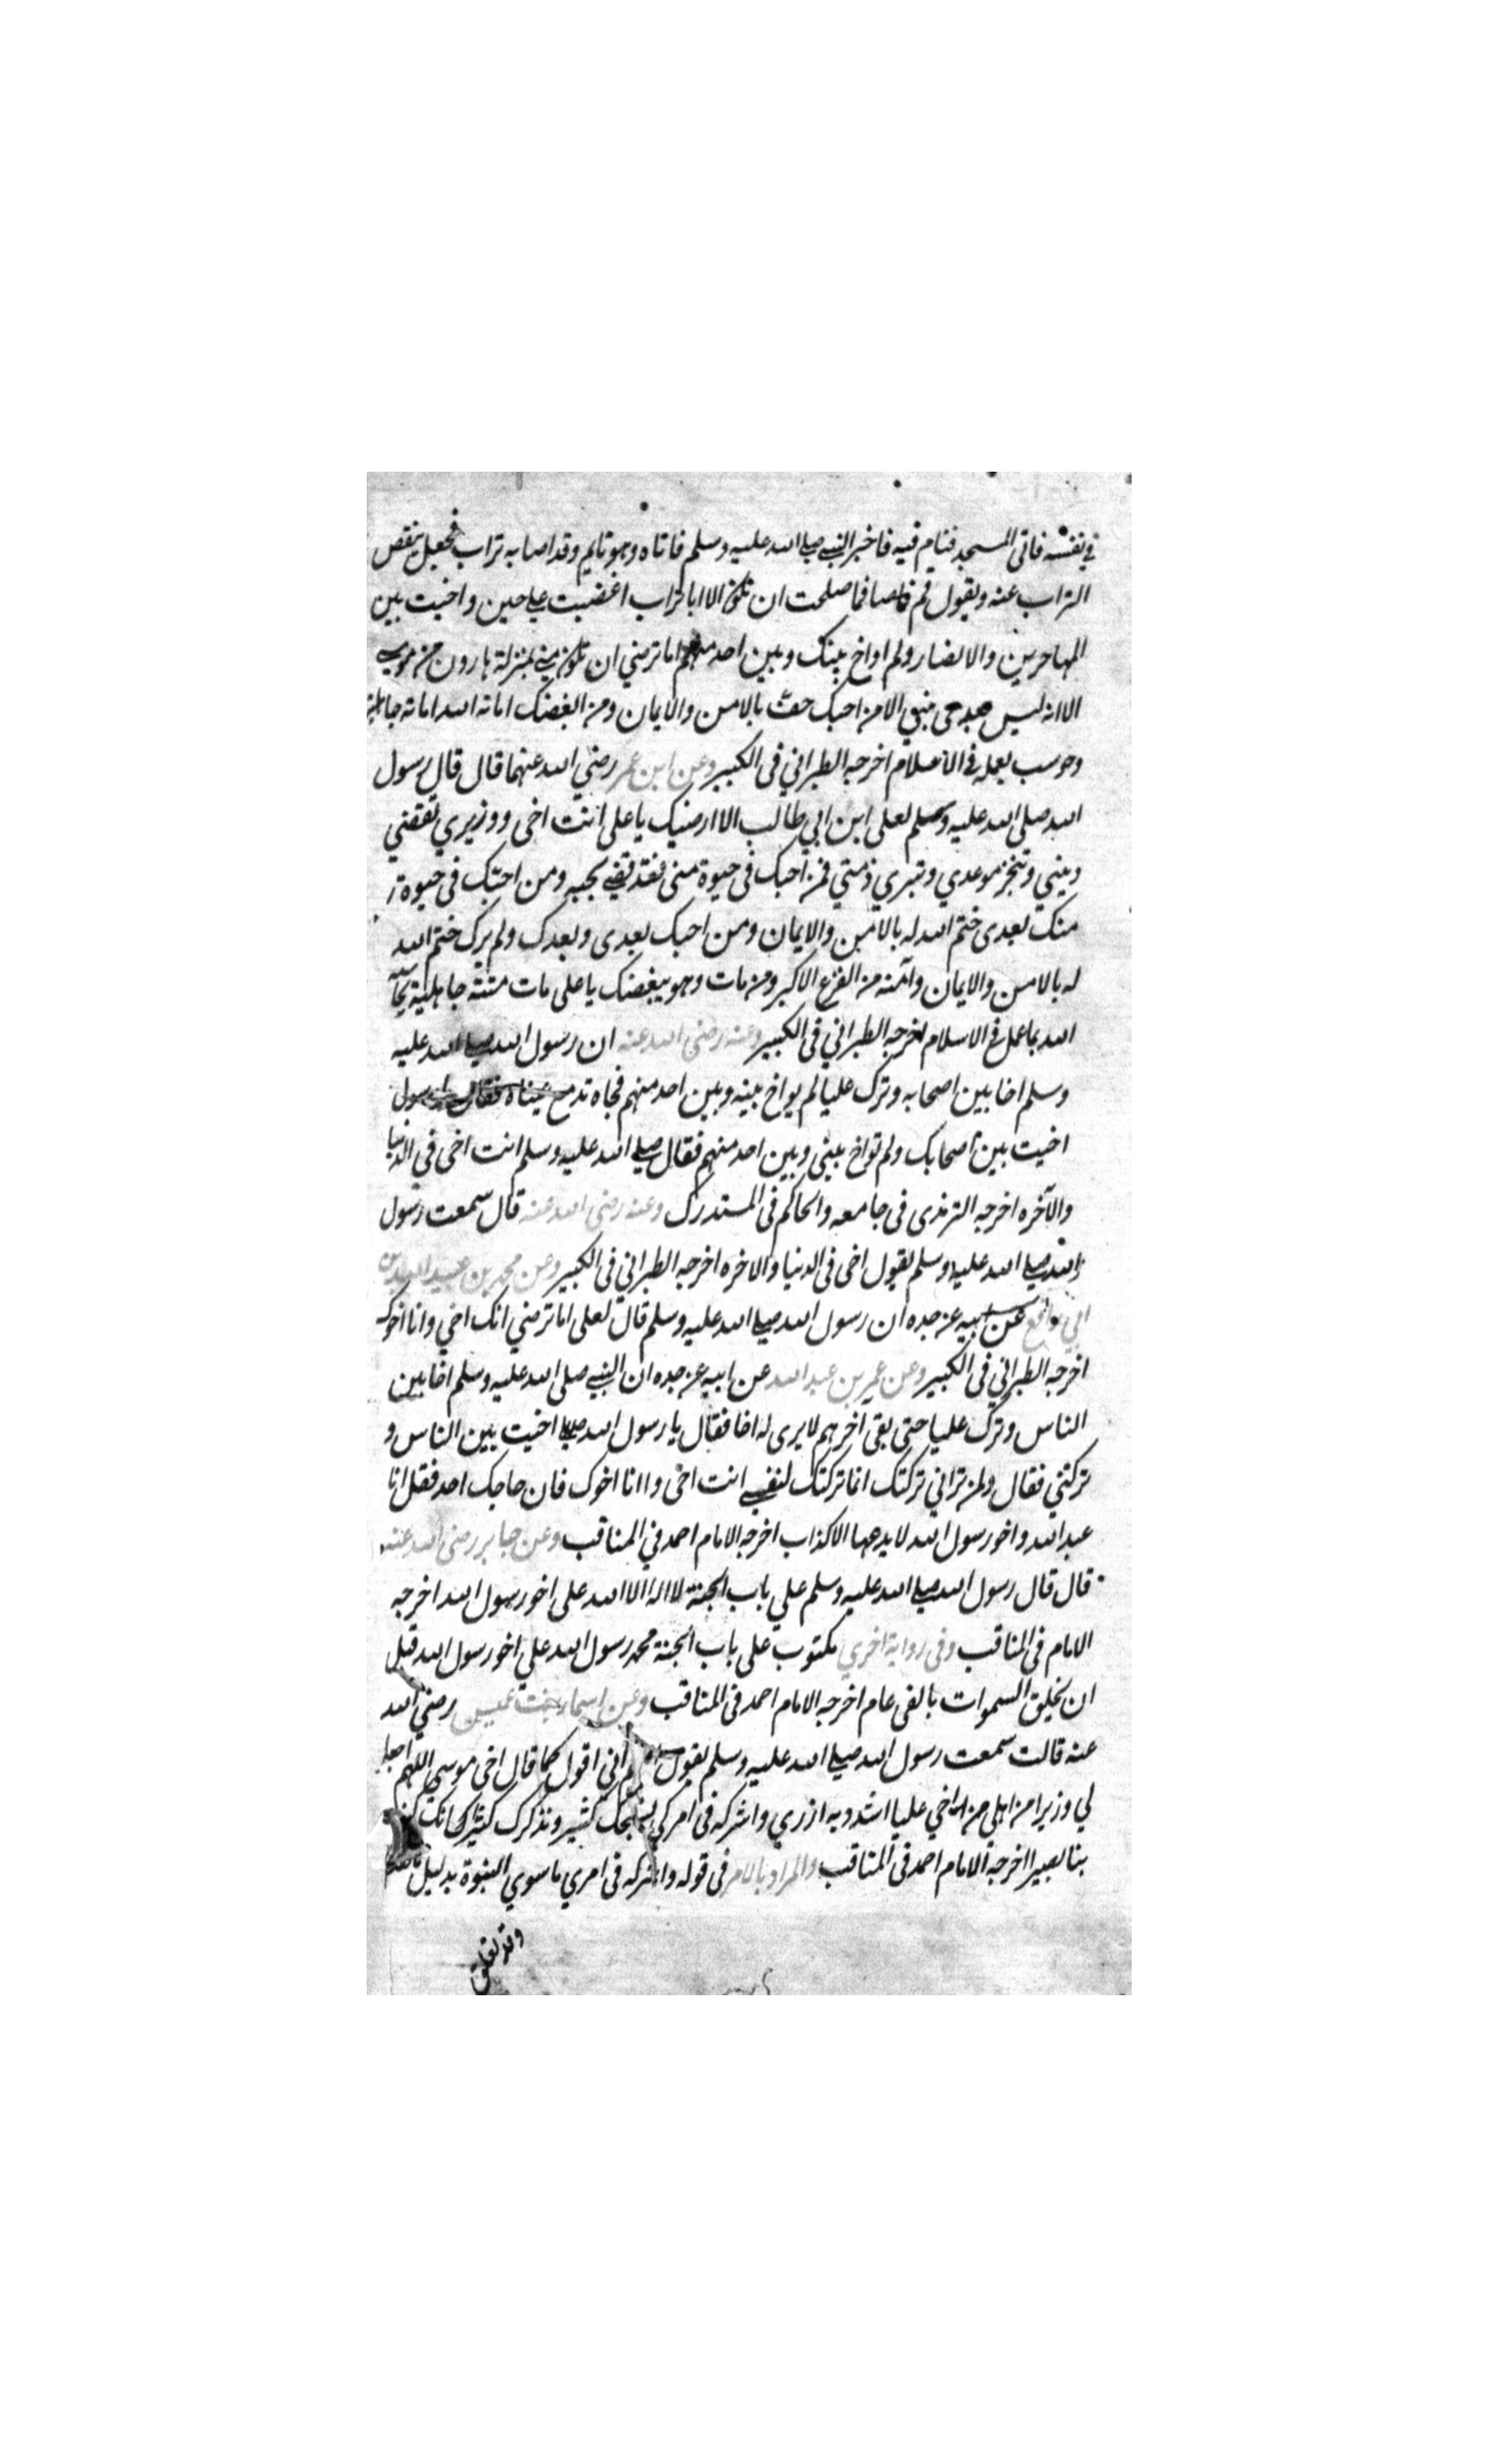 في نفسه فاتى المسجد فنام فيه فاخبر النبي صلى الله عليه وسلم فاتاه وهو نايم وقد اصابه تراب فجعل ينفض
التراب عنه ويقول قم فما صلحت ان تكون الا ابا تراب اغضبت علي حين واخيت بين
المهاجرين والانصار ولم اواخ بينك وبين احد منهم اما ترضي ان تكون مني بمنزلة هارون من موسى
الا انه ليس بعدي نبي الا من احبك حف بالامن والايمان ومن ابغضك اماته الله اماتة جاهلية
وحوسب بعمله في الاسلام اخرجه الطبراني في الكبير وعن ابن عمر رضي الله عنهما قال قال رسول
الله صلى الله عليه وسلم لعلى ابن ابي طالب الا ارضيك يا على انت اخي ووزيري تقضي
ديني وتنجز موعدي وتبري ذمتي فمن احبك في حيوة مني فقد قضى نحبه ومن احبك في حيوة
منك بعدى ختم الله له بالامن والايمان ومن احبك بعدى وبعدك ولم يرك ختم الله
له بالامن والايمان وآمنه من الفزع الاكبر ومن مات وهو يبغضك يا على مات ميتة جاهلية يحاسبه
الله بما عمل في الاسلام اخرجه الطبراني في الكبير وعنه رضي الله عنه ان رسول الله صلى الله عليه
وسلم اخا بين اصحابه وترك عليا لم يواخ بينه وبين احد منهم فجاه تدمع عيناه فقال رسول
اخيت بين اصحابك ولم تواخ بيني وبين احد منهم فقال صلى الله عليه وسلم انت اخي في الدنيا
والآخره اخرجه الترمذى في جامعه والحاكم في المستدرك وعنه رضي الله عنه قال سمعت رسول
الله صلى الله عليه وسلم يقول اخي في الدنيا والاخره اخرجه الطبراني في الكبير وعن محمد بن عبيد الله بن
ابي رافع عن ابيه عن جده ان رسول الله صلى الله عليه وسلم قال لعلى اما ترضي انك اخي وانا اخوك
اخرجه الطبراني في الكبير وعن عمر بن عبد الله عن ابيه عن جده ان النبي صلى الله عليه وسلم اخا بين
الناس وترك عليا حتى بقى آخرهم لا يرى له اخا فقال يا رسول الله صلى اخيت بين الناس و
تركتني فقال ولمن تراني تركتك انما تركتك لنفسي انت اخى واانا اخوك فان حاجك احد فقل انا
عبد الله واخو رسول الله لا يدعها الا كذاب اخرجه الامام احمد في المناقب وعن جابر رضي الله عنه
قال قال رسول الله صلى الله عليه وسلم علي باب الجنة لا اله الا الله على اخو رسول الله اخرجه
الامام في المناقب وفي رواية اخري مكتوب على باب الجنة محمد رسول الله علي اخو رسول الله قبل
ان يخلق السموات بالفى عام اخرجه الامام احمد في المناقب وعن اسماء بنت عميس رضي الله
عنه قالت سمعت رسول الله صلى الله عليه وسلم يقول اللهم اني اقول كما قال اخي موسى اللهم اجعل
لي وزيرا من اهلي اخي عليا اشدد به ازري واشركه في امري نسبحك كثير ونذكرك كثيرا انك كنت
بنا بصيرا اخرجه الامام احمد في المناقب والمراد بالامر في قوله واشركه في امري ما سوي النبوة بدليل
وقد تعلق